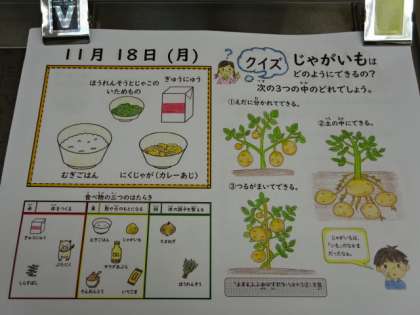 11月 18日(月)
ほうれんそうとじゃこの
いためもの
ぎゅうにゅう
むぎごはん
にくじゃが(カレーあじ)
食べ物の三つのはたらき
赤
黄
緑
体の調子を整える
ぎゅうにゅう
ぶたにく
しらすぼし
むぎごはん
じゃがいも
たまねぎ
ほうれんそう
クイズ
じゃがいもは
どのようにできるの?
次の3つの中のどれでしょう。
①えだに分かれてできる。
②土の中にできる。
③つるがまいてできる。
じゃがいもは、
「いも」のなかま
だったなぁ。